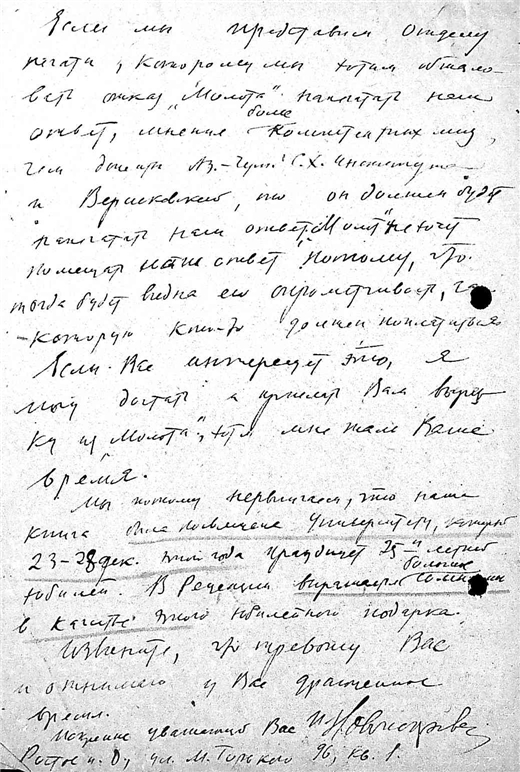 Если мы представим отделу
печати, которому мы хотим обжало-
вать отказ „Молота" напечатать наш
ответ, мнение более компетентных лиц,
чем доценты Аз.-Черн. С.Х. Института
и Вериковский, то он должен будет
напечатать наш ответ. „Молот" не хочет
помещать наш ответ потому, что
тогда будет видна его опрометчивость, за
которую кто-то должен поплатиться.
Если Вас интересует это, я
могу достать и прислать Вам вырез-
ку из „Молота", хотя мне жаль Ваше
время.
Мы потому нервничаем, что наша
книга была посвящена Университету, который
23-28 дек. этого года празднует 25-и летний
юбилей. В редакции выражали большие сомнения
в качестве этого юбилейного подарка.
Извините, что тревожу Вас
и отнимаю у Вас драгоценное
время.
Искренне уважающий Вас И. Новопокровский
Ростов н. Д., ул. М. Горького 96, кв. 1.